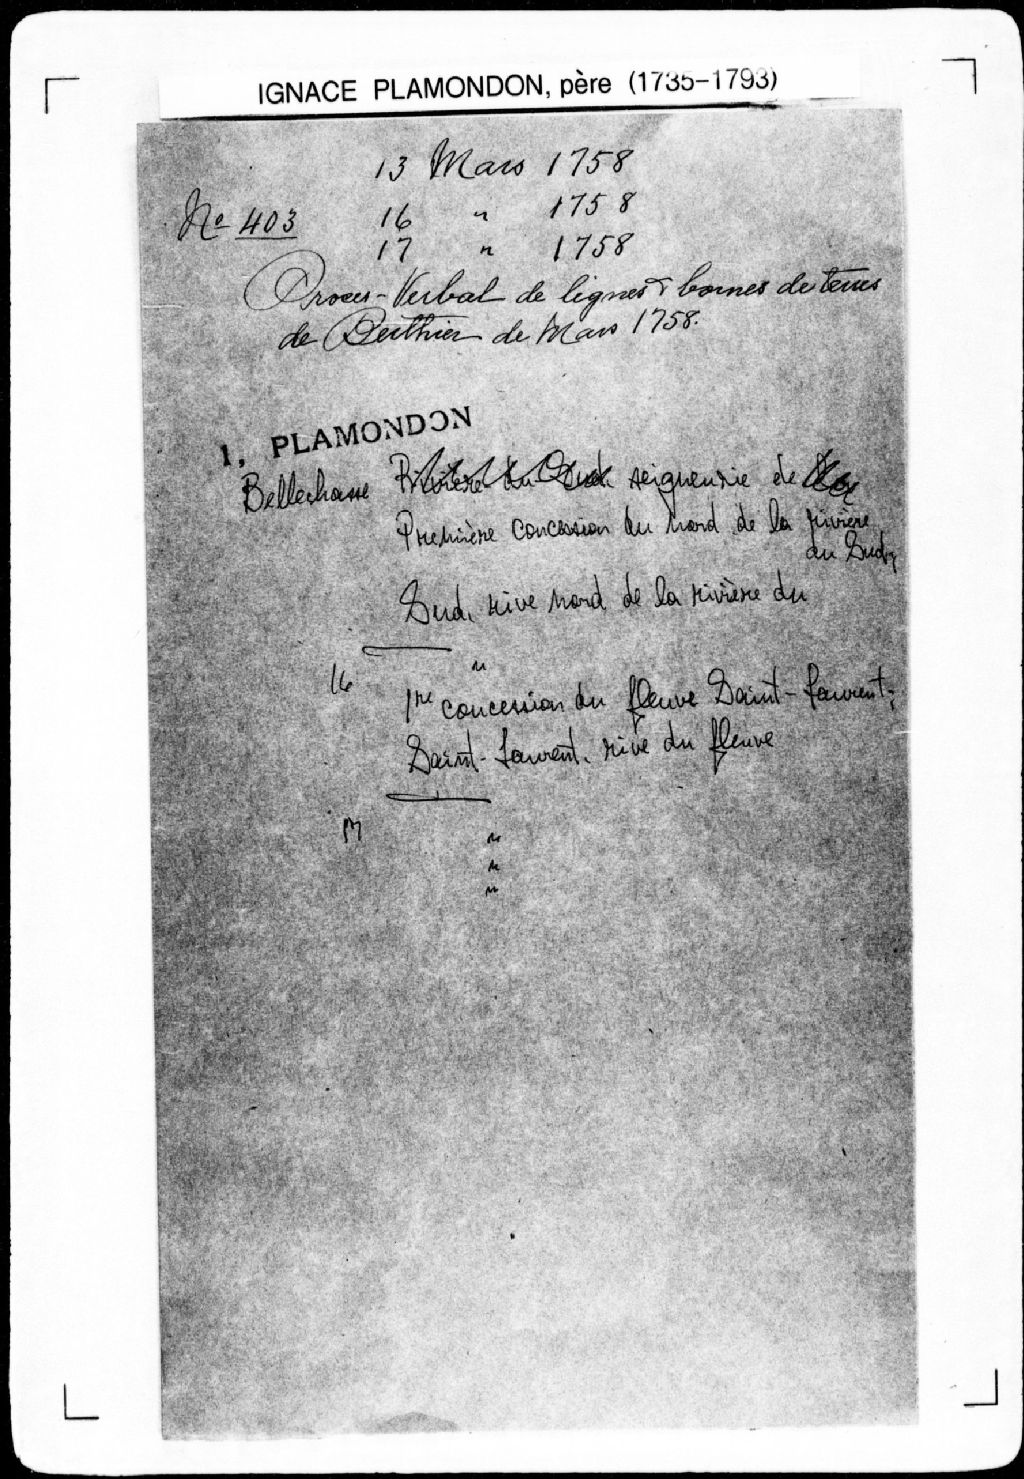 IGNACE PLAMONDON, père (1735–1793)
13 Mars 1758
No 403 16 " 1758
17 " 1758
Procès-Verbal de lignes & bornes de terres
de Berthier de Mars 1758.
I, PLAMONDON
Bellechasse Rivière du Sud, seigneurie de la
Première concession du nord de la rivière
du Sud;
Sud, rive nord de la rivière du
16 "
1re concession du fleuve Saint-Laurent;
Saint-Laurent, rive du fleuve
17 "
"
"